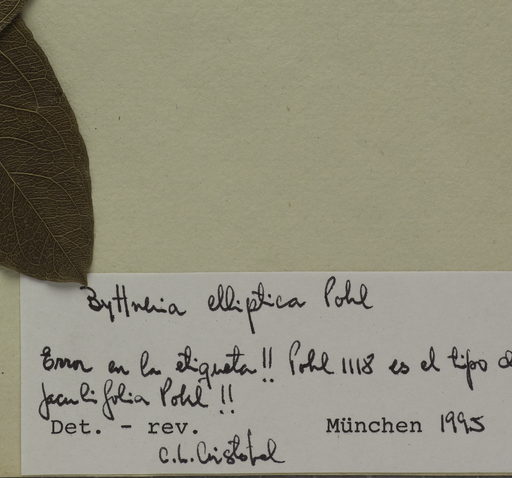 Byttneria elliptica Pohl
Error en la etiqueta!! Pohl 1118 es el tipo de
jaculifolia Pohl!!
Det. - rev. München 1995
C.L. Cristobal